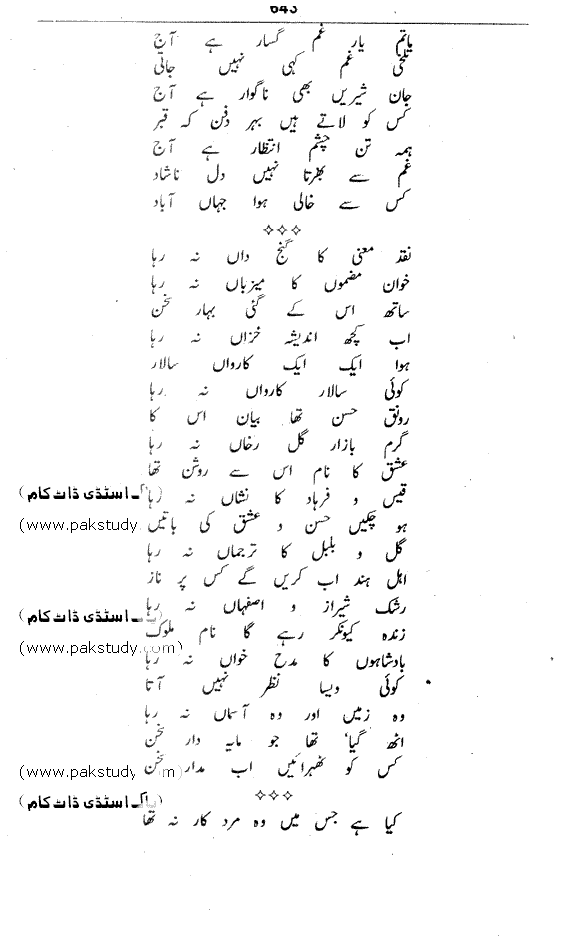 645
ماتم یار غم گسار ہے آج
تلخی غم کہی نہیں جاتی
جان شیریں بھی ناگوار ہے آج
کس کو لاتے ہیں بہر دفن کہ قبر
ہمہ تن چشم انتظار ہے آج
غم سے بھرتا نہیں دل ناشاد
کس سے خالی ہوا جہاں آباد
نقد معنی کا گنج داں نہ رہا
خوان مضموں کا میزباں نہ رہا
ساتھ اس کے گئی بہار سخن
اب کچھ اندیشہ خزاں نہ رہا
ہوا ایک ایک کارواں سالار
کوئی سالار کارواں نہ رہا
رونق حسن تھا بیاں اس کا
گرم بازار گل رخاں نہ رہا
عشق کا نام اس سے روشن تھا
قیس و فرہاد کا نشاں نہ رہا
(پاک اسٹڈی ڈاٹ کام)
ہو چکیں حسن و عشق کی باتیں
(www.pakstudy
گل و بلبل کا ترجماں نہ رہا
اہل ہند اب کریں گے کس پر ناز
رشک شیراز و اصفہاں نہ رہا
(پاک اسٹڈی ڈاٹ کام)
زندہ کیونکر رہے گا نام ملوک
(www.pakstudy.com)
بادشاہوں کا مدح خواں نہ رہا
کوئی ویسا نظر نہیں آتا
وہ زمیں اور وہ آسماں نہ رہا
اٹھ گیا، تھا جو مایہ دار سخن
کس کو ٹھہرائیں اب مدار سخن
(www.pakstudy.com)
(پاک اسٹڈی ڈاٹ کام)
کیا ہے جس میں وہ مرد کار نہ تھا